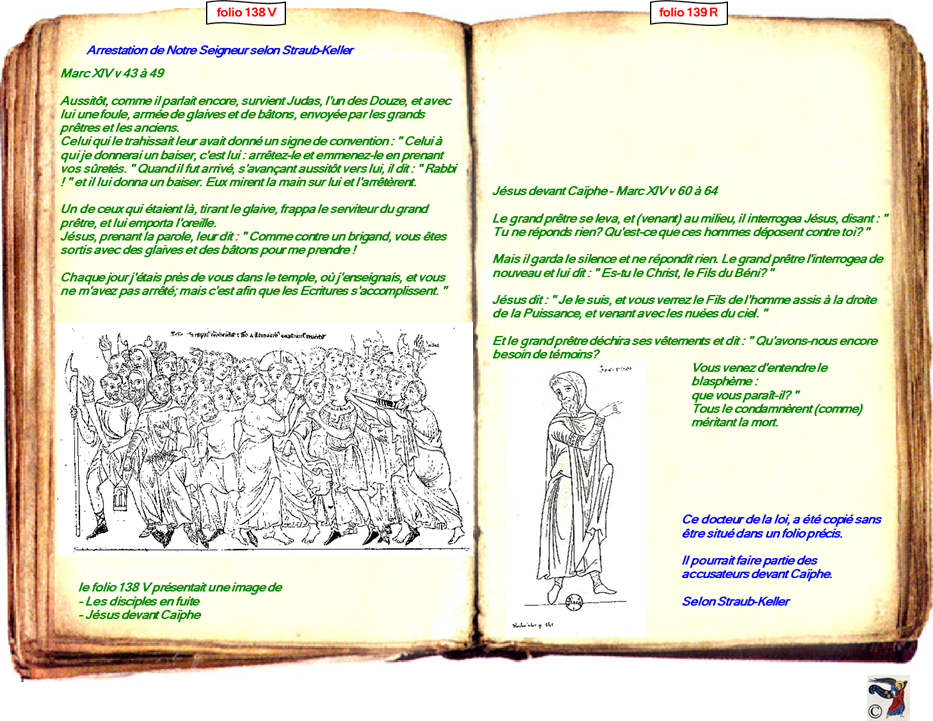 folio 138 V
Arrestation de Notre Seigneur selon Straub-Keller
Marc XIV v 43 à 49
Aussitôt, comme il parlait encore, survient Judas, l'un des Douze, et avec
lui une foule, armée de glaives et de bâtons, envoyée par les grands
prêtres et les anciens.
Celui qui le trahissait leur avait donné un signe de convention : " Celui à
qui je donnerai un baiser, c'est lui : arrêtez-le et emmenez-le en prenant
vos sûretés. " Quand il fut arrivé, s'avançant aussitôt vers lui, il dit : " Rabbi
! " et il lui donna un baiser. Eux mirent la main sur lui et l'arrêtèrent.
Un de ceux qui étaient là, tirant le glaive, frappa le serviteur du grand
prêtre, et lui emporta l'oreille.
Jésus, prenant la parole, leur dit : " Comme contre un brigand, vous êtes
sortis avec des glaives et des bâtons pour me prendre !
Chaque jour j'étais près de vous dans le temple, où j'enseignais, et vous
ne m'avez pas arrêté; mais c'est afin que les Ecritures s'accomplissent. "
le folio 138 V présentait une image de
- Les disciples en fuite
- Jésus devant Caïphe
folio 139 R
Jésus devant Caïphe - Marc XIV v 60 à 64
Le grand prêtre se leva, et (venant) au milieu, il interrogea Jésus, disant : "
Tu ne réponds rien? Qu'est-ce que ces hommes déposent contre toi? "
Mais il garda le silence et ne répondit rien. Le grand prêtre l'interrogea de
nouveau et lui dit : " Es-tu le Christ, le Fils du Béni? "
Jésus dit : " Je le suis, et vous verrez le Fils de l'homme assis à la droite
de la Puissance, et venant avec les nuées du ciel. "
Et le grand prêtre déchira ses vêtements et dit : " Qu'avons-nous encore
besoin de témoins?
Vous venez d'entendre le
blasphème :
que vous paraît-il? "
Tous le condamnèrent (comme)
méritant la mort.
Ce docteur de la loi, a été copié sans
être situé dans un folio précis.
Il pourrait faire partie des
accusateurs devant Caïphe.
Selon Straub-Keller
©